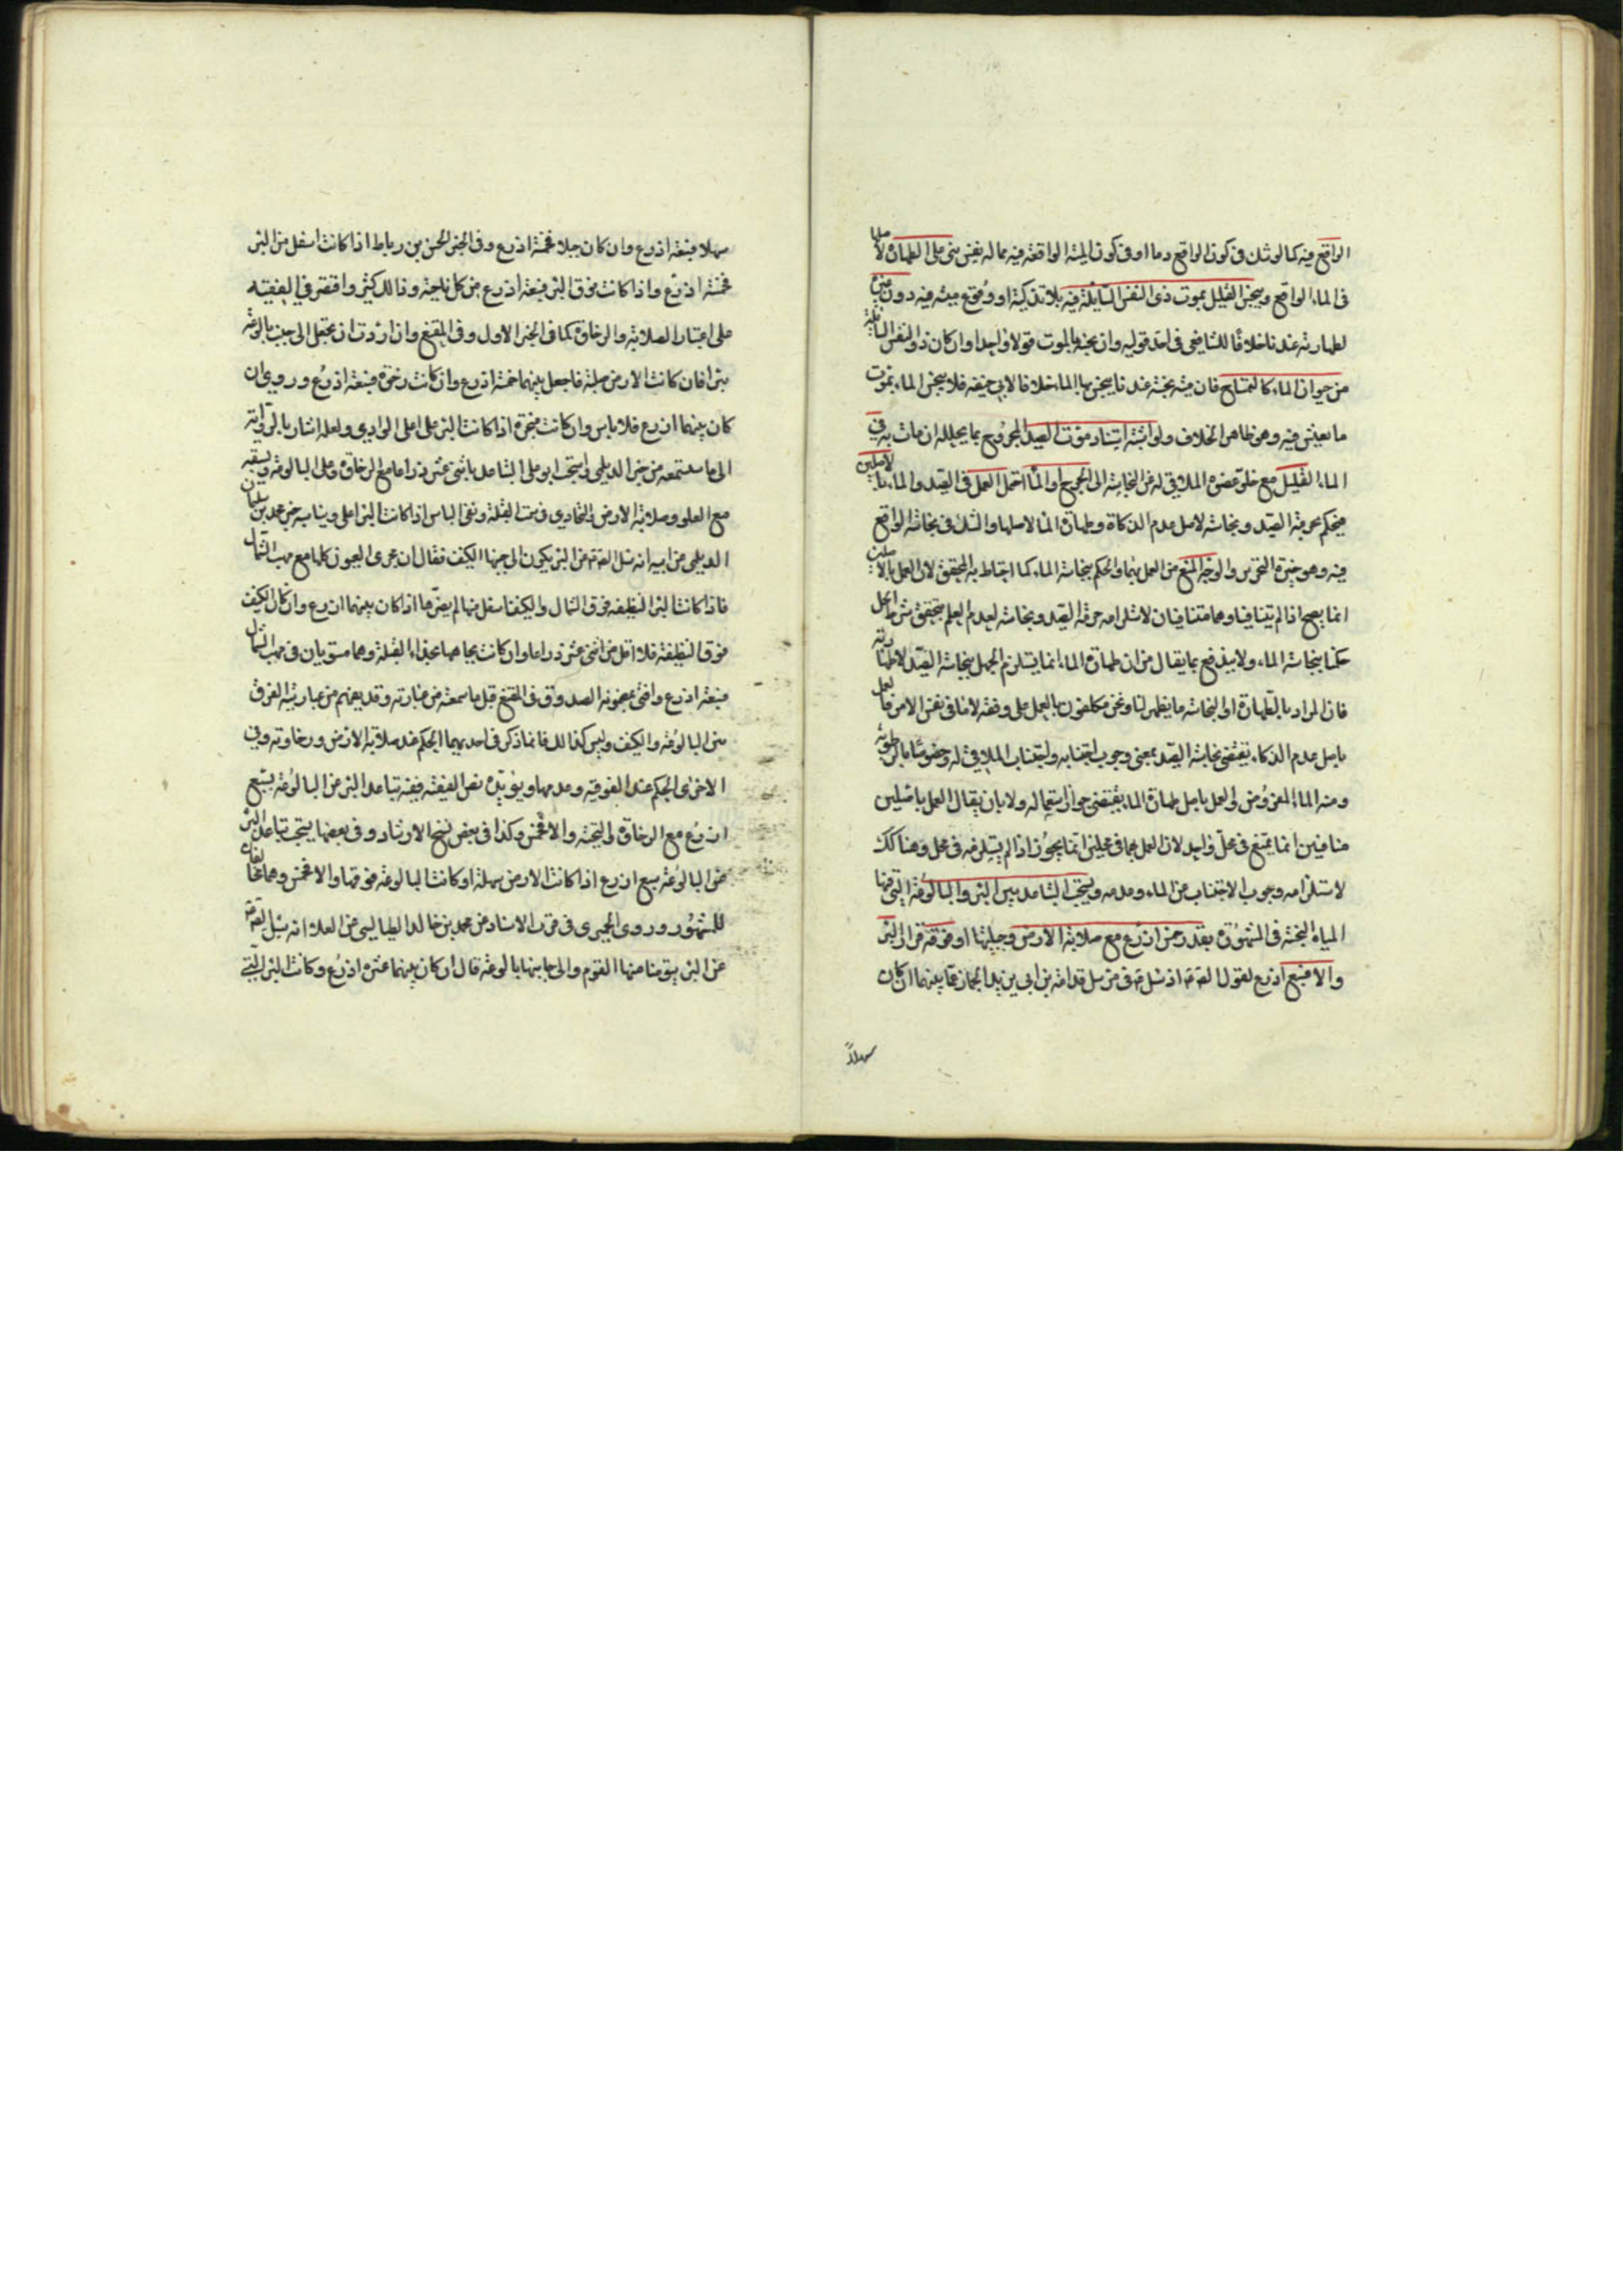 الواقع فيه كما لو شك في كون الواقع دما او في كون الميتة الواقعة فيه مما له نفس بنى على الطهارة لا
في الماء الواقع وينجس القليل بموت ذي النفس السائلة فيه بلا تذكية او وقوع ميته فيه دون
لطهارته عندنا خلافا للشافعي في احد قوليه وان نجسه بالموت قولا واحدا وان كان ذو النفس السائلة
من حيوان الماء كالتمساح فان ميته نجسة عندنا ينجس بها الماء خلافا لابي حنيفه فلا ينجس الماء بموت
ما يعيش فيه وهو ظاهر الخلاف ولو اشتبه استناد موت الصيد المجروح بما يحلله ان مات به في
الماء القليل مع خلو عضوه الملاقي له من النجاسة الى الجرح او الماء احتمل العمل في الصيد والماء بالاصلين
فيحكم بحرمة الصيد ونجاسته لاصل عدم الذكاة وطهارة الماء لاصلها والشك في نجاسة الواقع
فيه وهو خيرة التحرير والوجه المنع من العمل بهما والحكم بنجاسة الماء كما احتاط به المحقق لان العمل بالاصلين
انما يصح اذا لم يتنافيا وهما متنافيان لاستلزامه حرمة الصيد ونجاسته لعدم العلم بتحقق شرط
حكمنا بنجاسة الماء ولا يندفع بما يقال من ان طهارة الماء انما يستلزم الجهل بنجاسة الصيد لا طهارته
فان المراد بالطهارة او النجاسة ما يظهر لنا ونحن مكلفون بالعمل على وفقه لا ما في نفس الامر فالعمل
باصل عدم الذكاء يقتضي نجاسة الصيد بمعنى وجوب اجتنابه واجتناب الملاقي له وخصوصا بالرطوبة
ومنه الماء المفروض والعمل باصل طهارة الماء يقتضي جواز استعماله ولا بان يقال العمل باصلين
متنافيين انما يمتنع في محل واحد لان العمل بهما في محلين انما يجوز اذا لم يستلزمه في محل وهنا كك
لاستلزامه وجوب الاجتناب من الماء وعدمه ويستحب التباعد بين البئر والبالوعة التي فيها
المياه النجسة في المشهور بقدر خمس اذرع مع صلابة الارض وجبليتها او فوقية قرار البئر
والا فسبع اذرع لقول الصادق اذ سئل في مرسل قدامة بن ابي يزيد الجماز عما بينهما ان كان
سهلاً
سهلا فسبعة اذرع وان كان جبلا فخمسة اذرع وفي الخبر الحسن بن رباط اذا كانت اسفل من البئر
فخمسة اذرع واذا كانت فوق البئر فسبعة اذرع من كل ناحية وذالك كثير واقتصر في الفقيه
على اعتبار الصلابة والرخاوة كما في الخبر الاول وفي المقنع وان اردت ان تجعل الى جنب بالوعة
بئرا فان كانت الارض صلبة فاجعل بينهما خمسة اذرع وان كانت رخوة فسبعة اذرع وروي ان
كان بينهما اذرع فلا باس وان كانت مبخرة اذا كانت البئر على اعلى الوادي ولعله اشار بالرواية
الى ما ستسمعه من خبر الديلمي واستحب ابو علي التباعد باثني عشر ذراعا مع الرخاوة وعلى البالوعة وبسبعة
مع العلو وصلابة الارض والتحاذي في سمت القبلة ونفى الباس اذا كانت البئر اعلى ويناسبه خبر محمد بن سليمان
الديلمي من ابيه انه سئل الصادق عن البئر يكون الى جنبها الكنيف فقال ان مجرى العيون كلها مع مهب الشمال
فاذا كانت البئر النظيفه فوق الشمال والكنيف اسفل منها لم يضرها اذا كان بينهما اذرع وان كان الكنيف
فوق النظيفة فلا اقل من اثني عشر ذراعا وان كانت تجاهها بحذاء القبلة وهما مستويان في مهب الشمال
فسبعة اذرع وافتى بمضمونه الصدوق في المقنع قبل ما سمعته من عبارته وقد يفهم من عبارته الفرق
بين البالوعة والكنيف وليس كذالك فانما ذكر في احديهما الحكم عند صلابة الارض ورخاوته وفي
الاخرى الحكم عند الفوقية وعدمها ويؤيده نص الفقيه ففيه تباعد البئر من البالوعة بسبع
اذرع مع الرخاوة والتحتية والا فخمس وكذا في بعض نسخ الارشاد وفي بعضها يستحب تباعد البئر
من البالوعة سبع اذرع اذا كانت الارض سهلة او كانت البالوعة فوقها والا فخمس وهما مخالفان
للمشهور وروى الحميري في قرب الاسناد عن محمد بن خالد الطيالسي عن العلاء انه سئل الصادق
عن البئر يتوضا منها القوم والى جانبها بالوعة قال ان كان بينهما عشرة اذرع وكانت البئر التي